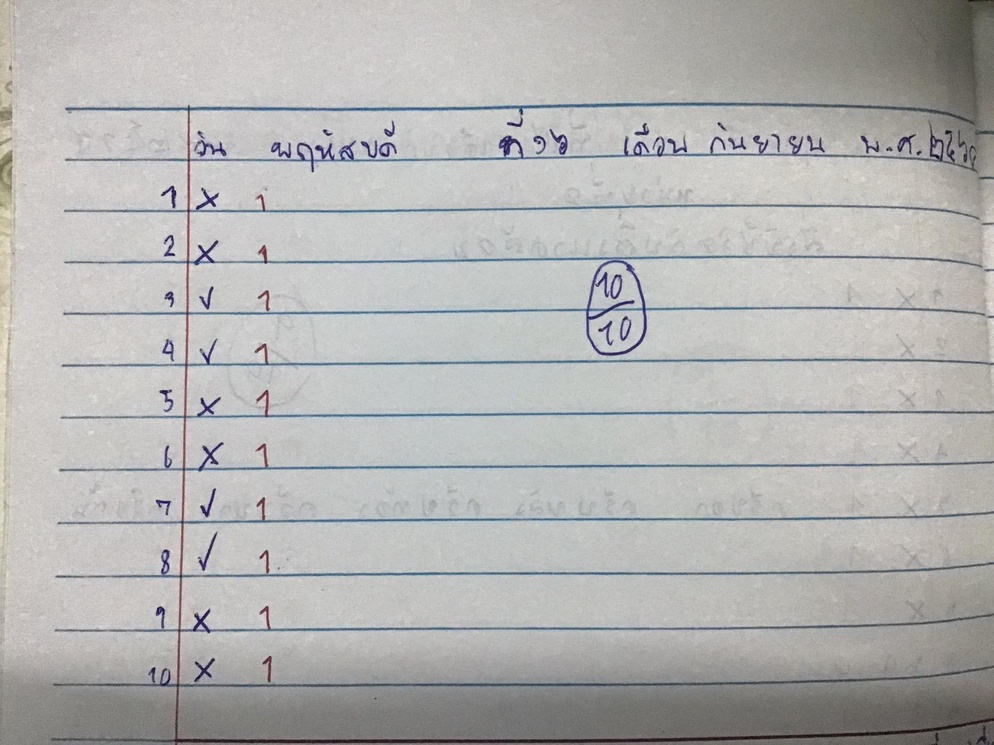 วัน พฤหัสบดี ที่ ๑๖ เดือน กันยายน พ.ศ.
1 × 1
2 × 1
3 ✓ 1
10
10
4 ✓ 1
5 × 1
6 × 1
7 ✓ 1
8 ✓ 1
9 × 1
10 × 1